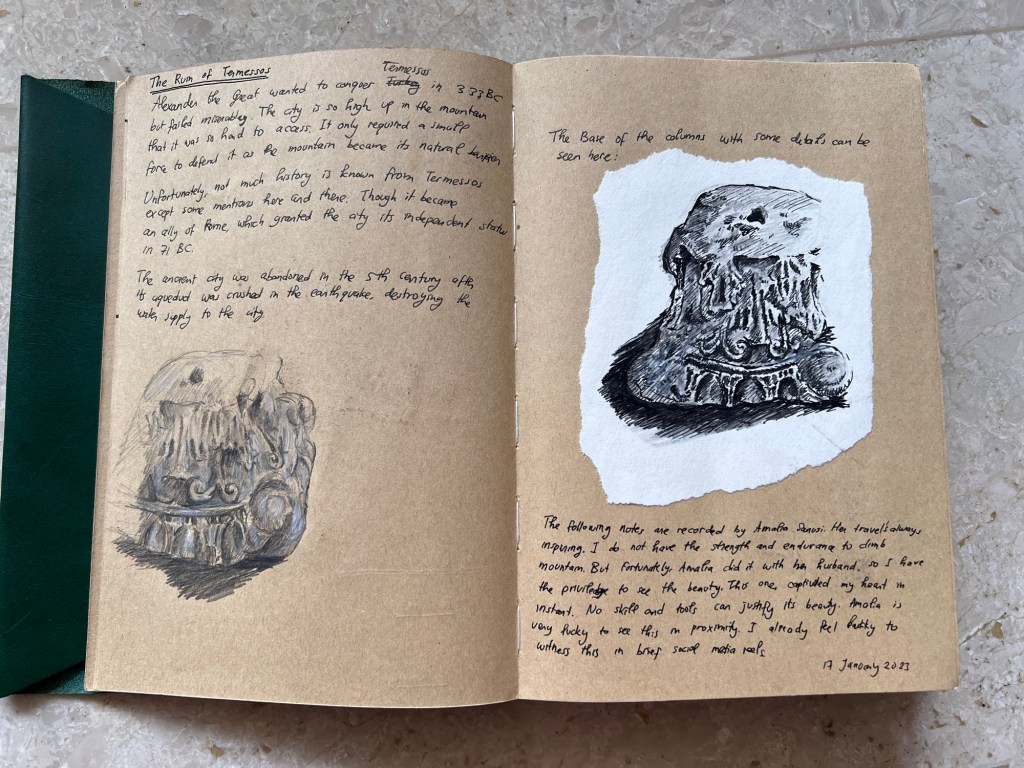 The Ruin of Termessos
Alexander the Great wanted to conquer Termessos in 333 BC
but failed miserably. The city is so high up in the mountain
that it was so hard to access. It only required a small
force to defend it as the mountain became its natural
Unfortunately, not much history is known from Termessos
except some mentions here and there. Though it became
an ally of Rome, which granted the city its independent status
in 71 BC.
The ancient city was abandoned in the 5th century after
its aqueduct was crushed in the earthquake, destroying the
water supply to the city.
The Base of the columns with some details can be
seen here:
The following notes are recorded by Amalia Sanusi. Her travel's always
inspiring. I do not have the strength and endurance to climb
mountain. But fortunately, Amalia did it with her husband, so I have
the to see the beauty. This one captivated my heart in
instant. No skill and tools can justify its beauty. Amalia is
very lucky to see this in proximity. I already feel lucky to
witness this in brief social media reels.
17 January 2023